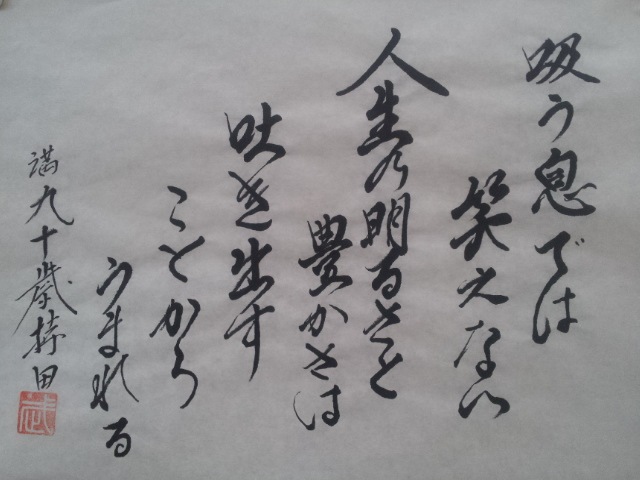 吸う息では
笑えない
人生の明るさと
豊かさは
吐き出す
ことから
うまれる
満九十歳 持田
武